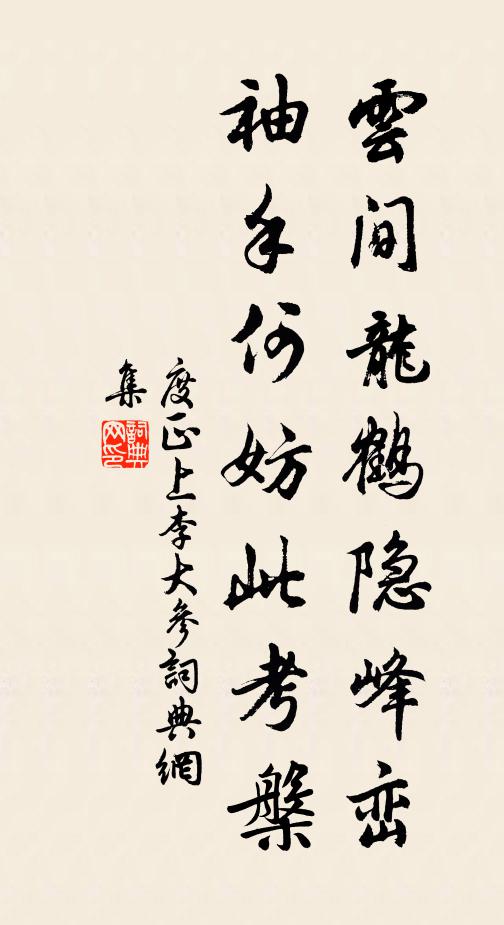 雲间龍鶴隐峰峦
袖手何妨此考槃
度正上李大參詞典網
集
詞典网印